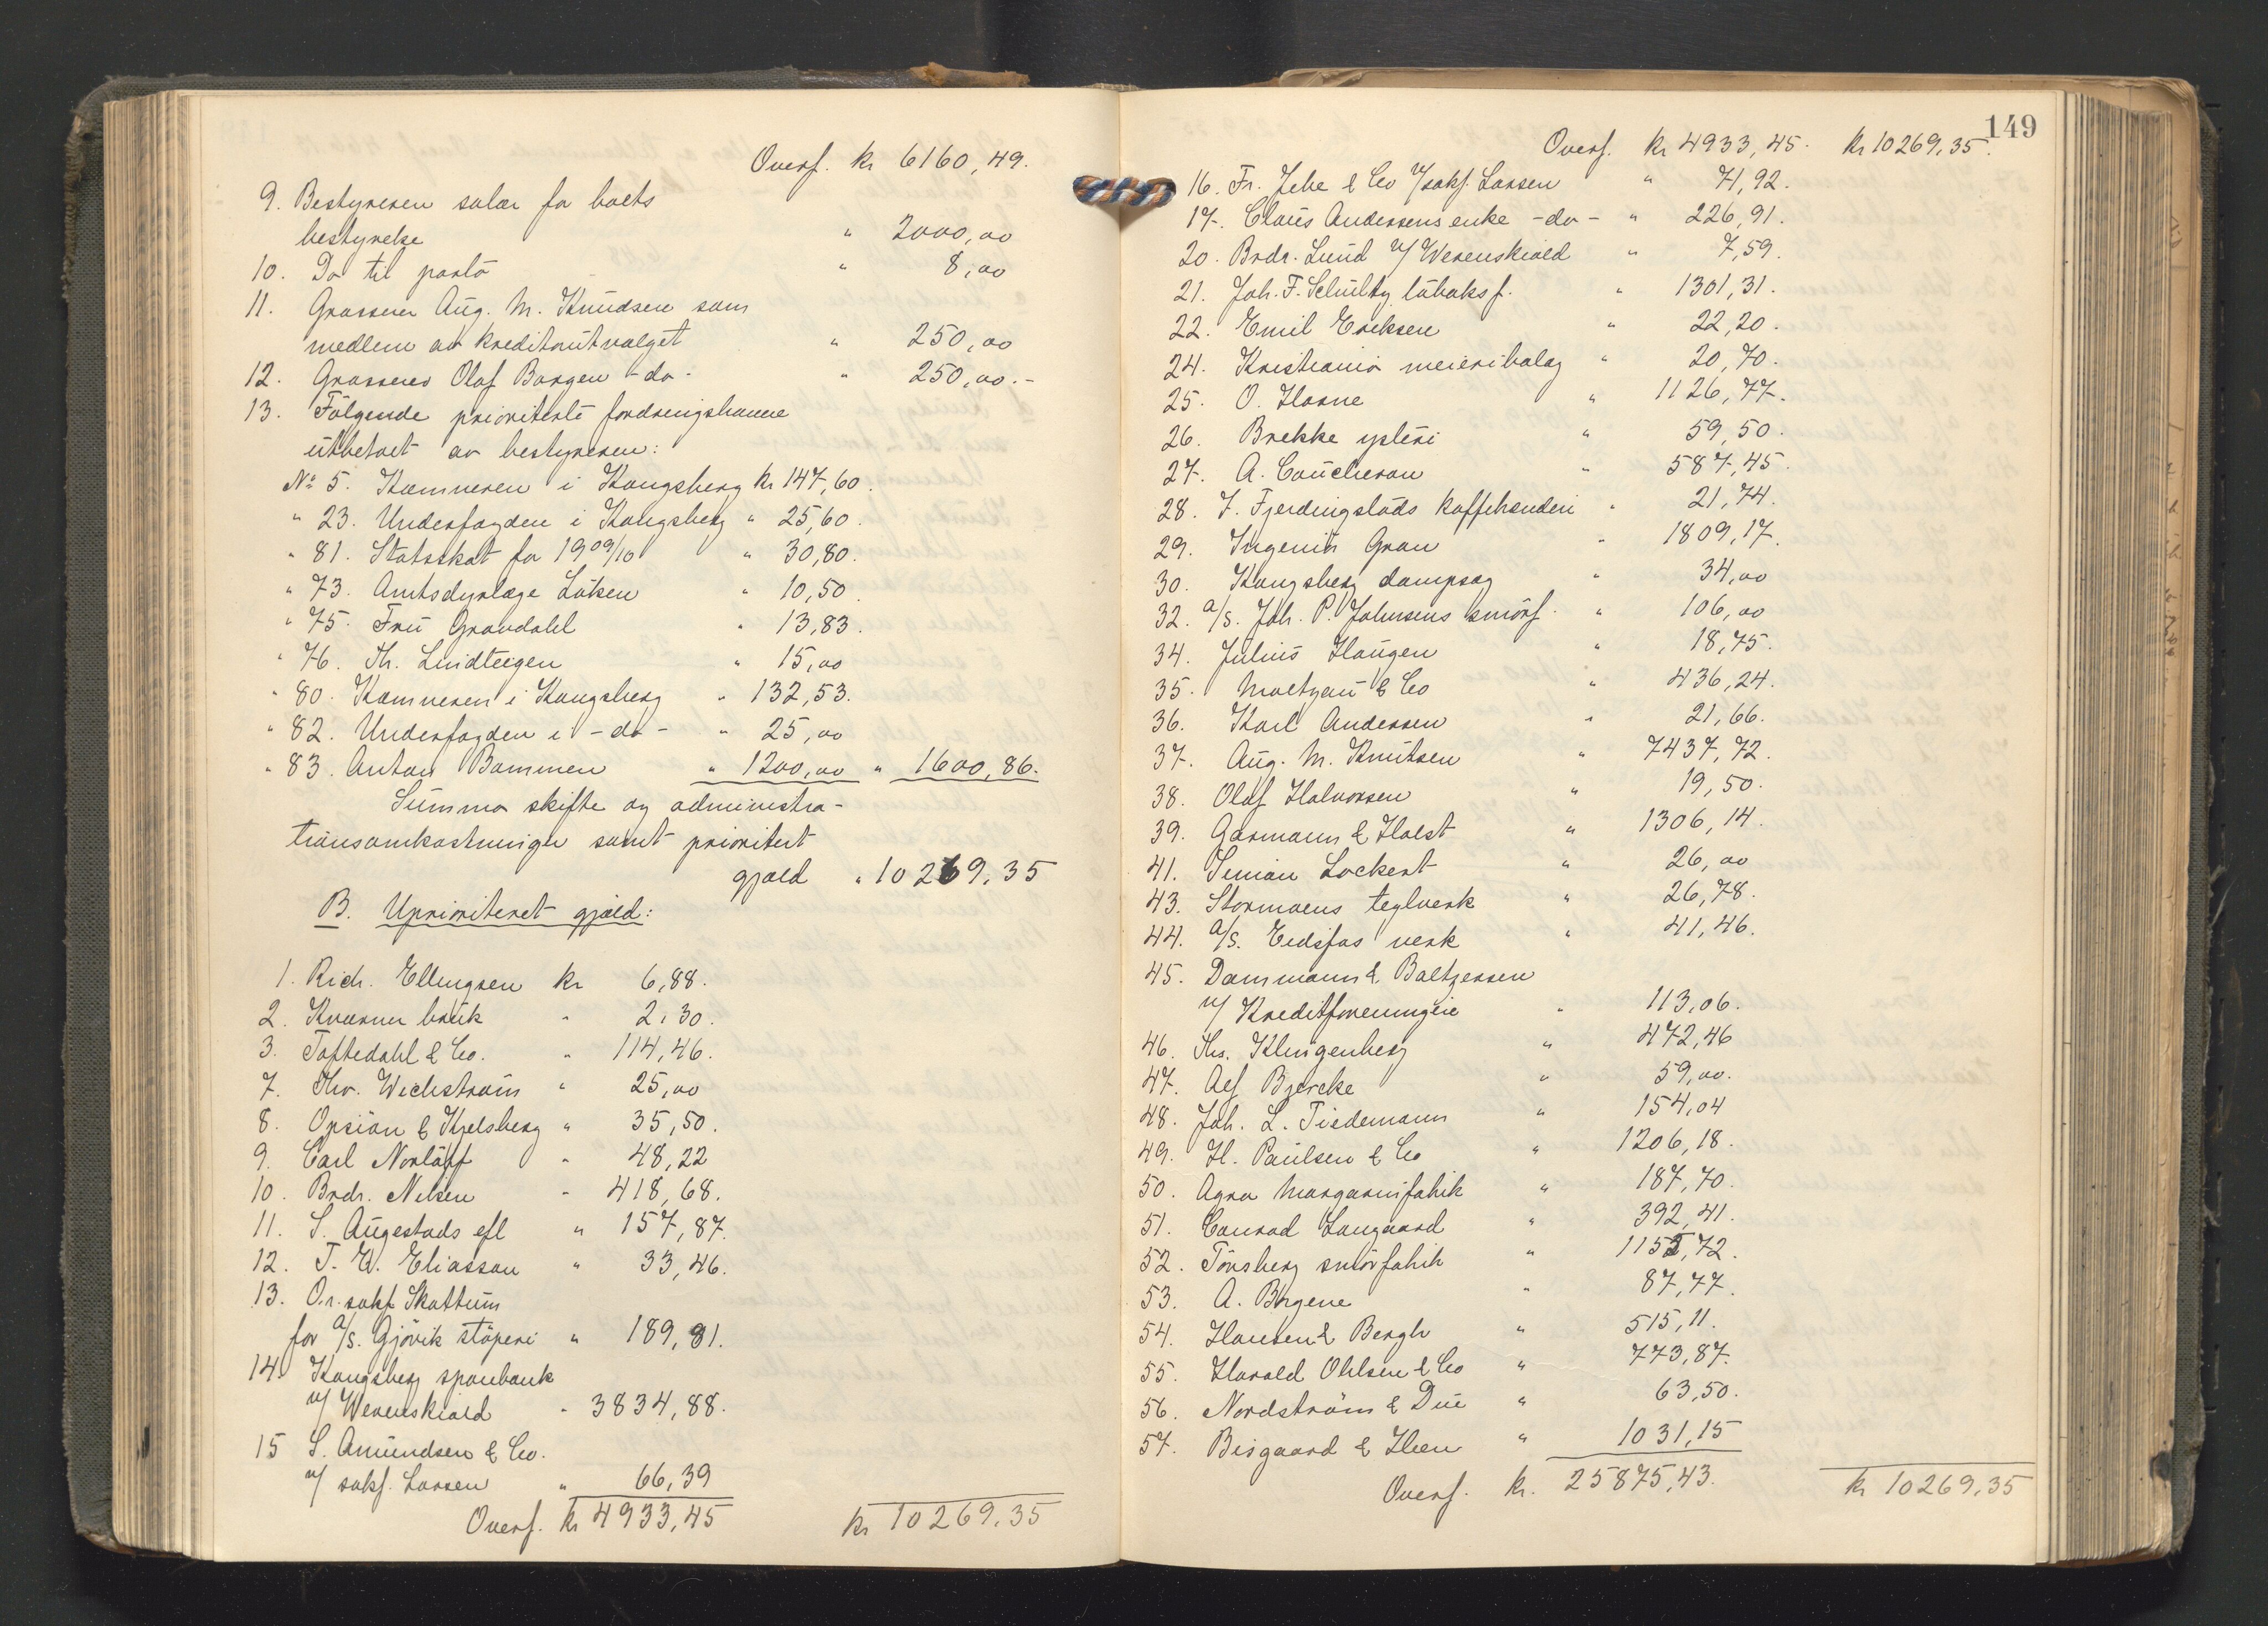 Overf. kr 6160,49.
9. Bestyreren salær for boets
bestyrelse " 2000,00
10. Do til porto " 8,00
11. Grosserer Aug. M. Knudsen som
medlem av kreditorutvalget " 250,00
12. Grosserer Olaf Borgen -do- " 250,00.-
13. Følgende prioriterte fordringshavere
utbetalt av bestyreren:
No 5. Kæmneren i Kongsberg kr 147,60.
" 23. Underfogden i Kongsberg " 25,60.
" 81. Statsskat for 1909/10 " 30,80.
" 73. Amtsdyrlæge Løken " 10,50.
" 75. Fru Grøndahl " 13,83.
" 76. Th. Lindteigen " 15,00
" 80. Kæmneren i Kongsberg " 132,53.
" 82. Underfogden i -do- " 25,00
" 83. Anton Bommen " 1200,00 " 1600,86.
Summa skifte og administra-
tionsomkostninger samt prioritert
gjæld " 10269,35
B. Uprioriteret gjæld:
1. Rich. Ellingsen kr 6,88.
2. Kværner bruk " 2,30.
3. Toftedahl & Co. " 114,46.
7. Thv. Wichstrøm " 25,00
8. Opsion & Kjelsberg " 35,50.
9. Carl Norløff " 48,22
10. Brdr. Nilsen " 418,68.
11. S. Augestads efl " 157,87.
12. T. W. Eliasson " 33,46.
13. O.r.sakf Skattum
for A/S. Gjøvik støperi " 189,81.
14. Kongsberg sparebank
v/ Werenskiold " 3834,88.
15 S. Amundsen & Co.
v/ sakf. Larsen " 66,39
Overf. kr 4933,45 kr 10269,35
149
Overf. kr 4933,45. kr 10269,35.
16. Fr. Jebe & Co v/sakf. Larsen " 71,92.
17. Claus Andersens enke -do- " 226,91.
20. Brdr. Lund v/ Werenskiold " 7,59.
21. Joh. F. Schultz tobaksf. " 1301,31.
22. Emil Eriksen " 22,20.
24. Kristiania meieribolag " 20,70.
25. O. Horne " 1126,77.
26. Brekke ysteri " 59,50.
27. A. Coucheron " 587,45.
28. J. Fjerdingstads kaffebrenderi " 21,74.
29. Ingeniør Gran " 1809,17.
30. Kongsberg dampsag " 34,00
32. A/S. Joh. P. Johnsens smørf. " 106,00
34. Julius Haugen " 18,75.
35. Moltzau & Co " 436,24.
36. Karl Andersen " 21,66.
37. Aug. M. Knutsen " 7437,72.
38. Olaf Halvorsen " 19,50.
39. Garmann & Holst " 1306,14.
41. Simon Lockert " 26,00
43. Stormoens teglverk " 26,78.
44. A/S. Eidsfos verk " 41,46.
45. Dammann & Baltzersen
v/ Kreditforeningen " 113,06.
46. Ths. Klingenberg " 472,46
47. Alf Bjercke " 59,00.
48. Joh. L. Tiedemann " 154,04
49. H. Paulsen & Co " 1206,18.
50. Agra Margarinfabrik " 187,70.
51. Conrad Langaard " 392,41.
52. Tønsberg smørfabrik " 1155,72.
53. A. Borgene " 87,77.
54. Hansen & Bergh " 515,11.
55. Harald Ohlsen & Co " 773,87.
56. Nordstrøm & Due " 63,50.
57. Bisgaard & Høen " 1031,15
Overf. kr. 25875,43. kr 10269,35